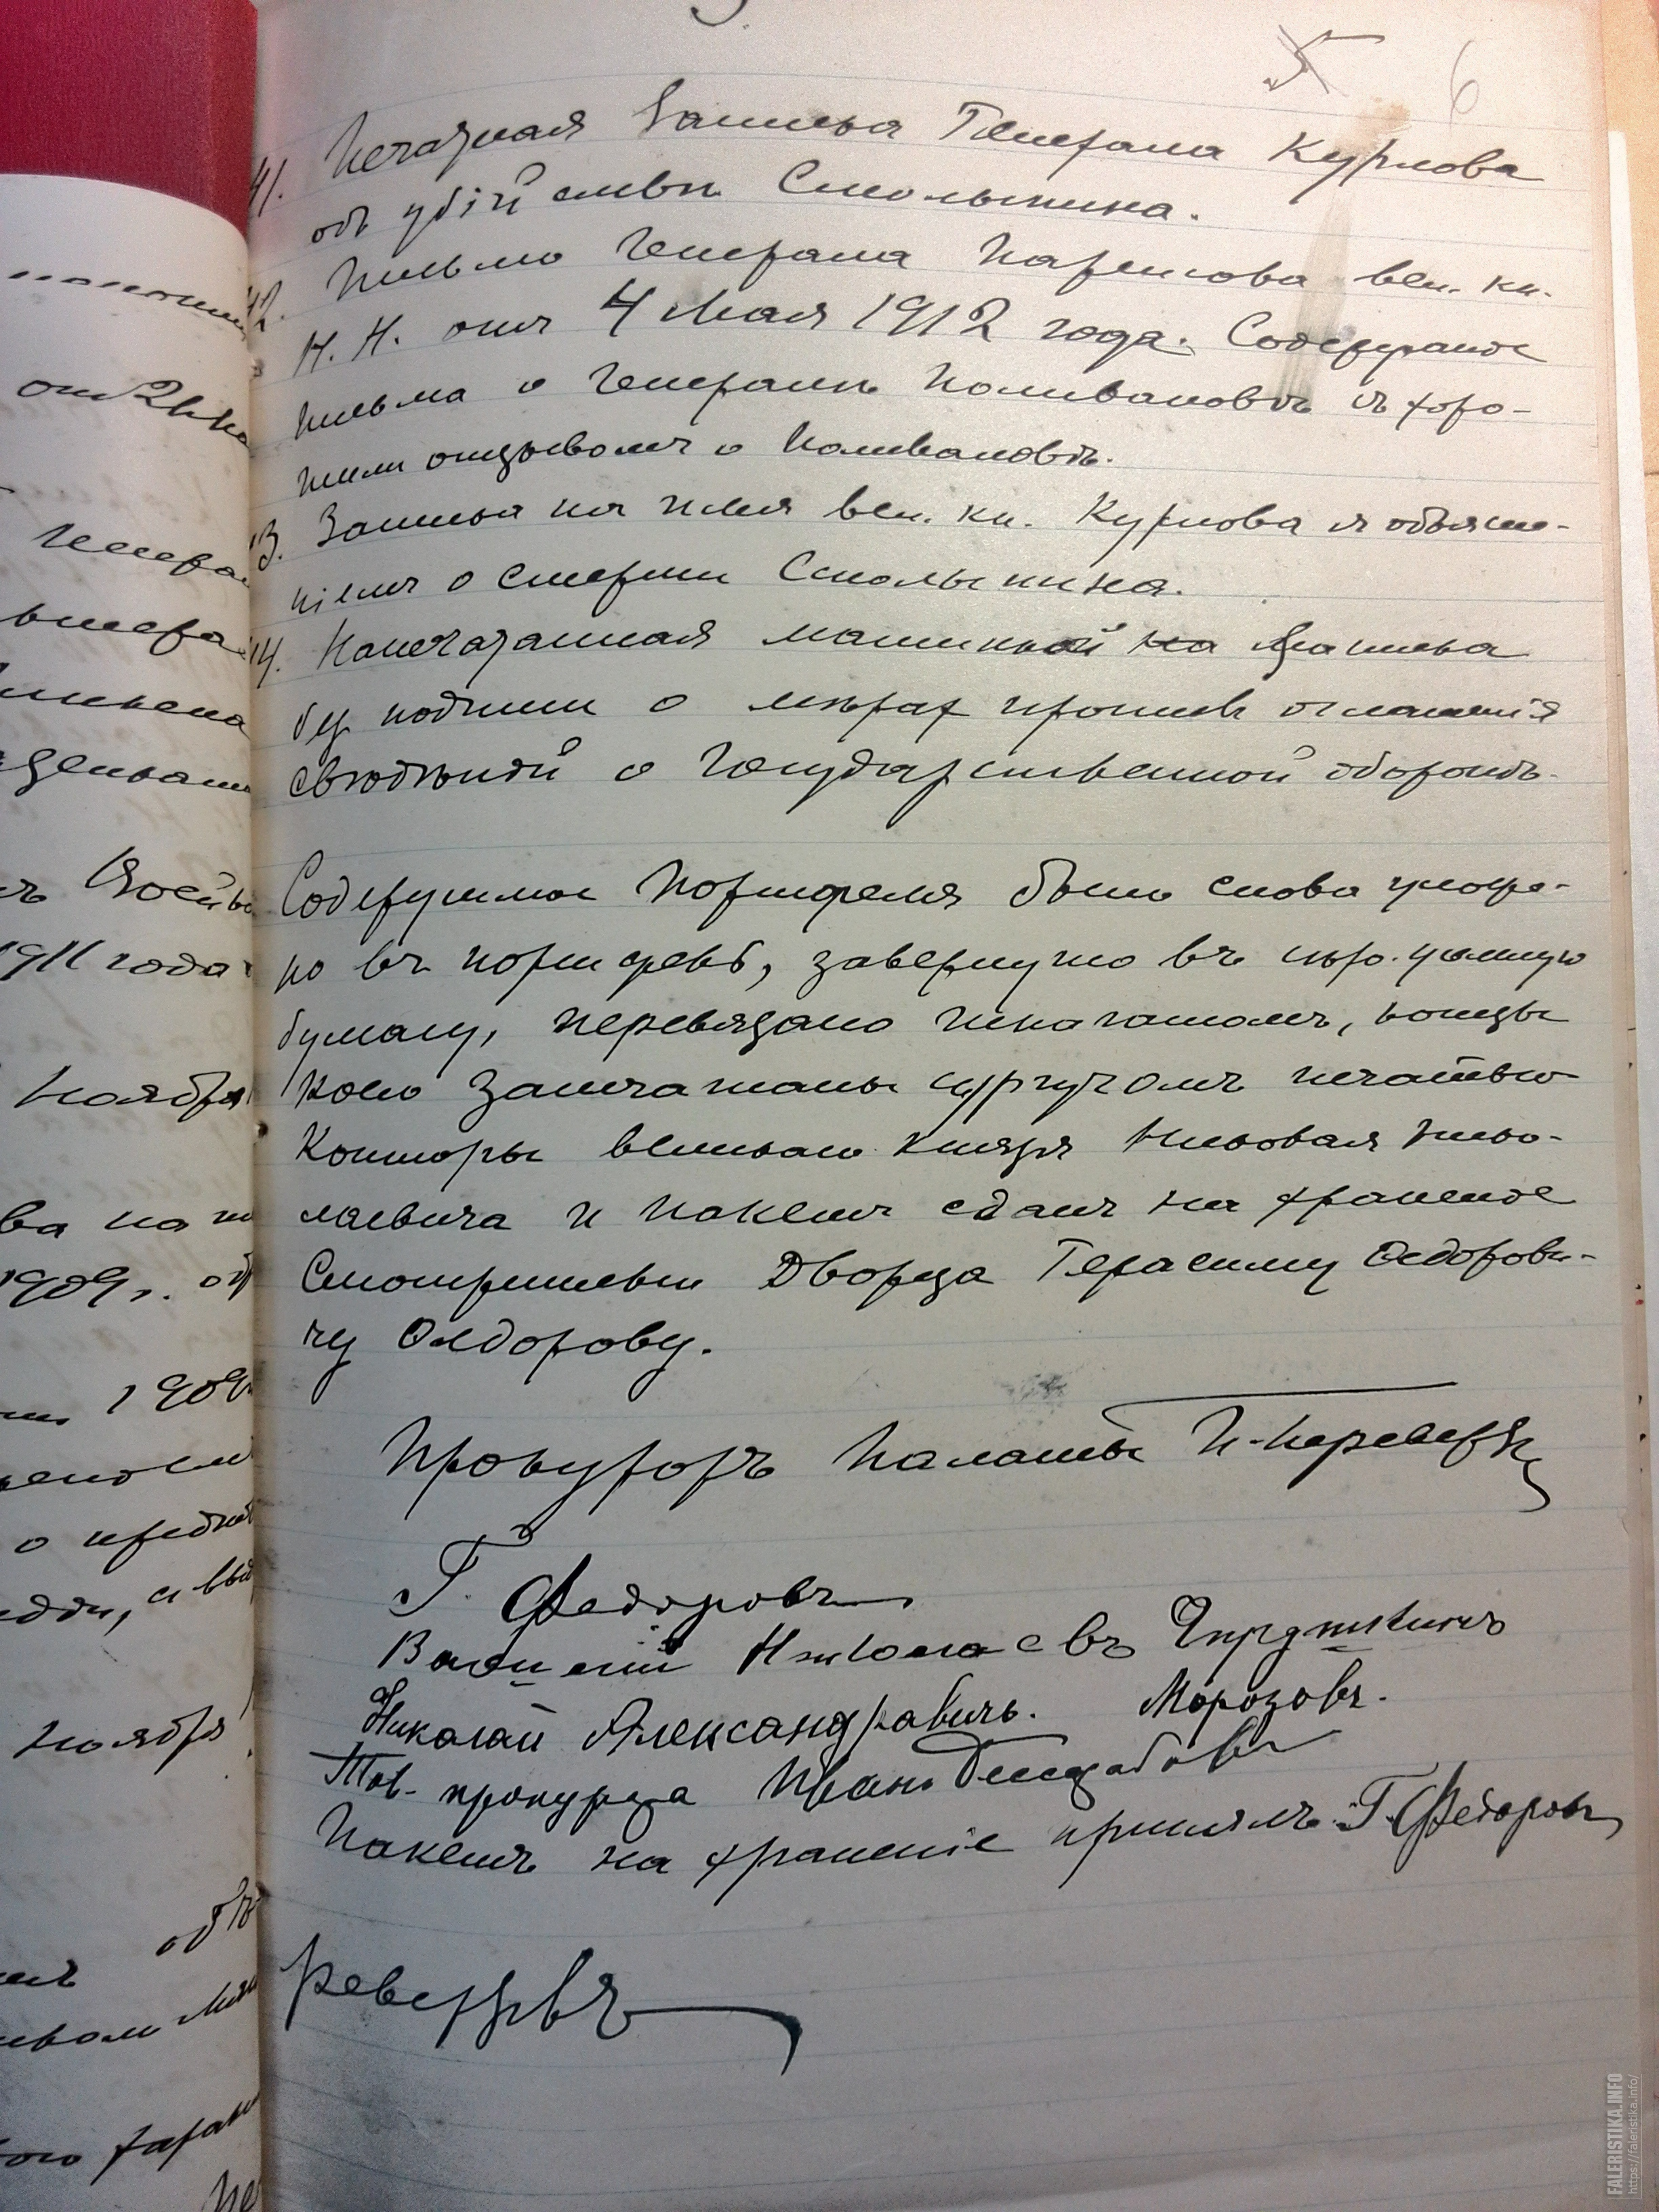 6
41. Печатная Записка Генерала Курлова
объ убійствѣ Столыпина.
42. Письмо Генерала Паренсова вел. кн.
Н. Н. отъ 4 Мая 1912 года. Содержаніе
письма о Генералѣ Поливановѣ съ хоро-
шимъ отзывомъ о Поливановѣ.
43. Записка на имя вел. кн. Курлова съ объясне-
ніемъ о смерти Столыпина.
44. Напечатанная машинкой на Записка
безъ подписи о мѣрах противъ оглашенія
свѣдѣній о Государственной оборонѣ.
Содержимое портфеля было снова уложе-
но въ портфель, завернуто въ бумагу, перевязано шпагатомъ, концы
коего запечатаны сургучомъ печатью
Конторы великаго князя Николая Нико-
лаевича и пакетъ сданъ на храненіе
Смотрителю Дворца Герасиму Ѳедорови-
чу Ѳедорову.
Прокуроръ Палаты П. Переверзев
Г. Федоровъ
Василий
Николай Александравичъ. Морозовъ.
Тов. прокурора Иванъ
Пакетъ на храненіе принялъ Г. Федоровъ
ноября
1911 года
1909 г.
1909
ноября
FALERISTIKA.INFO
https://faleristika.info/